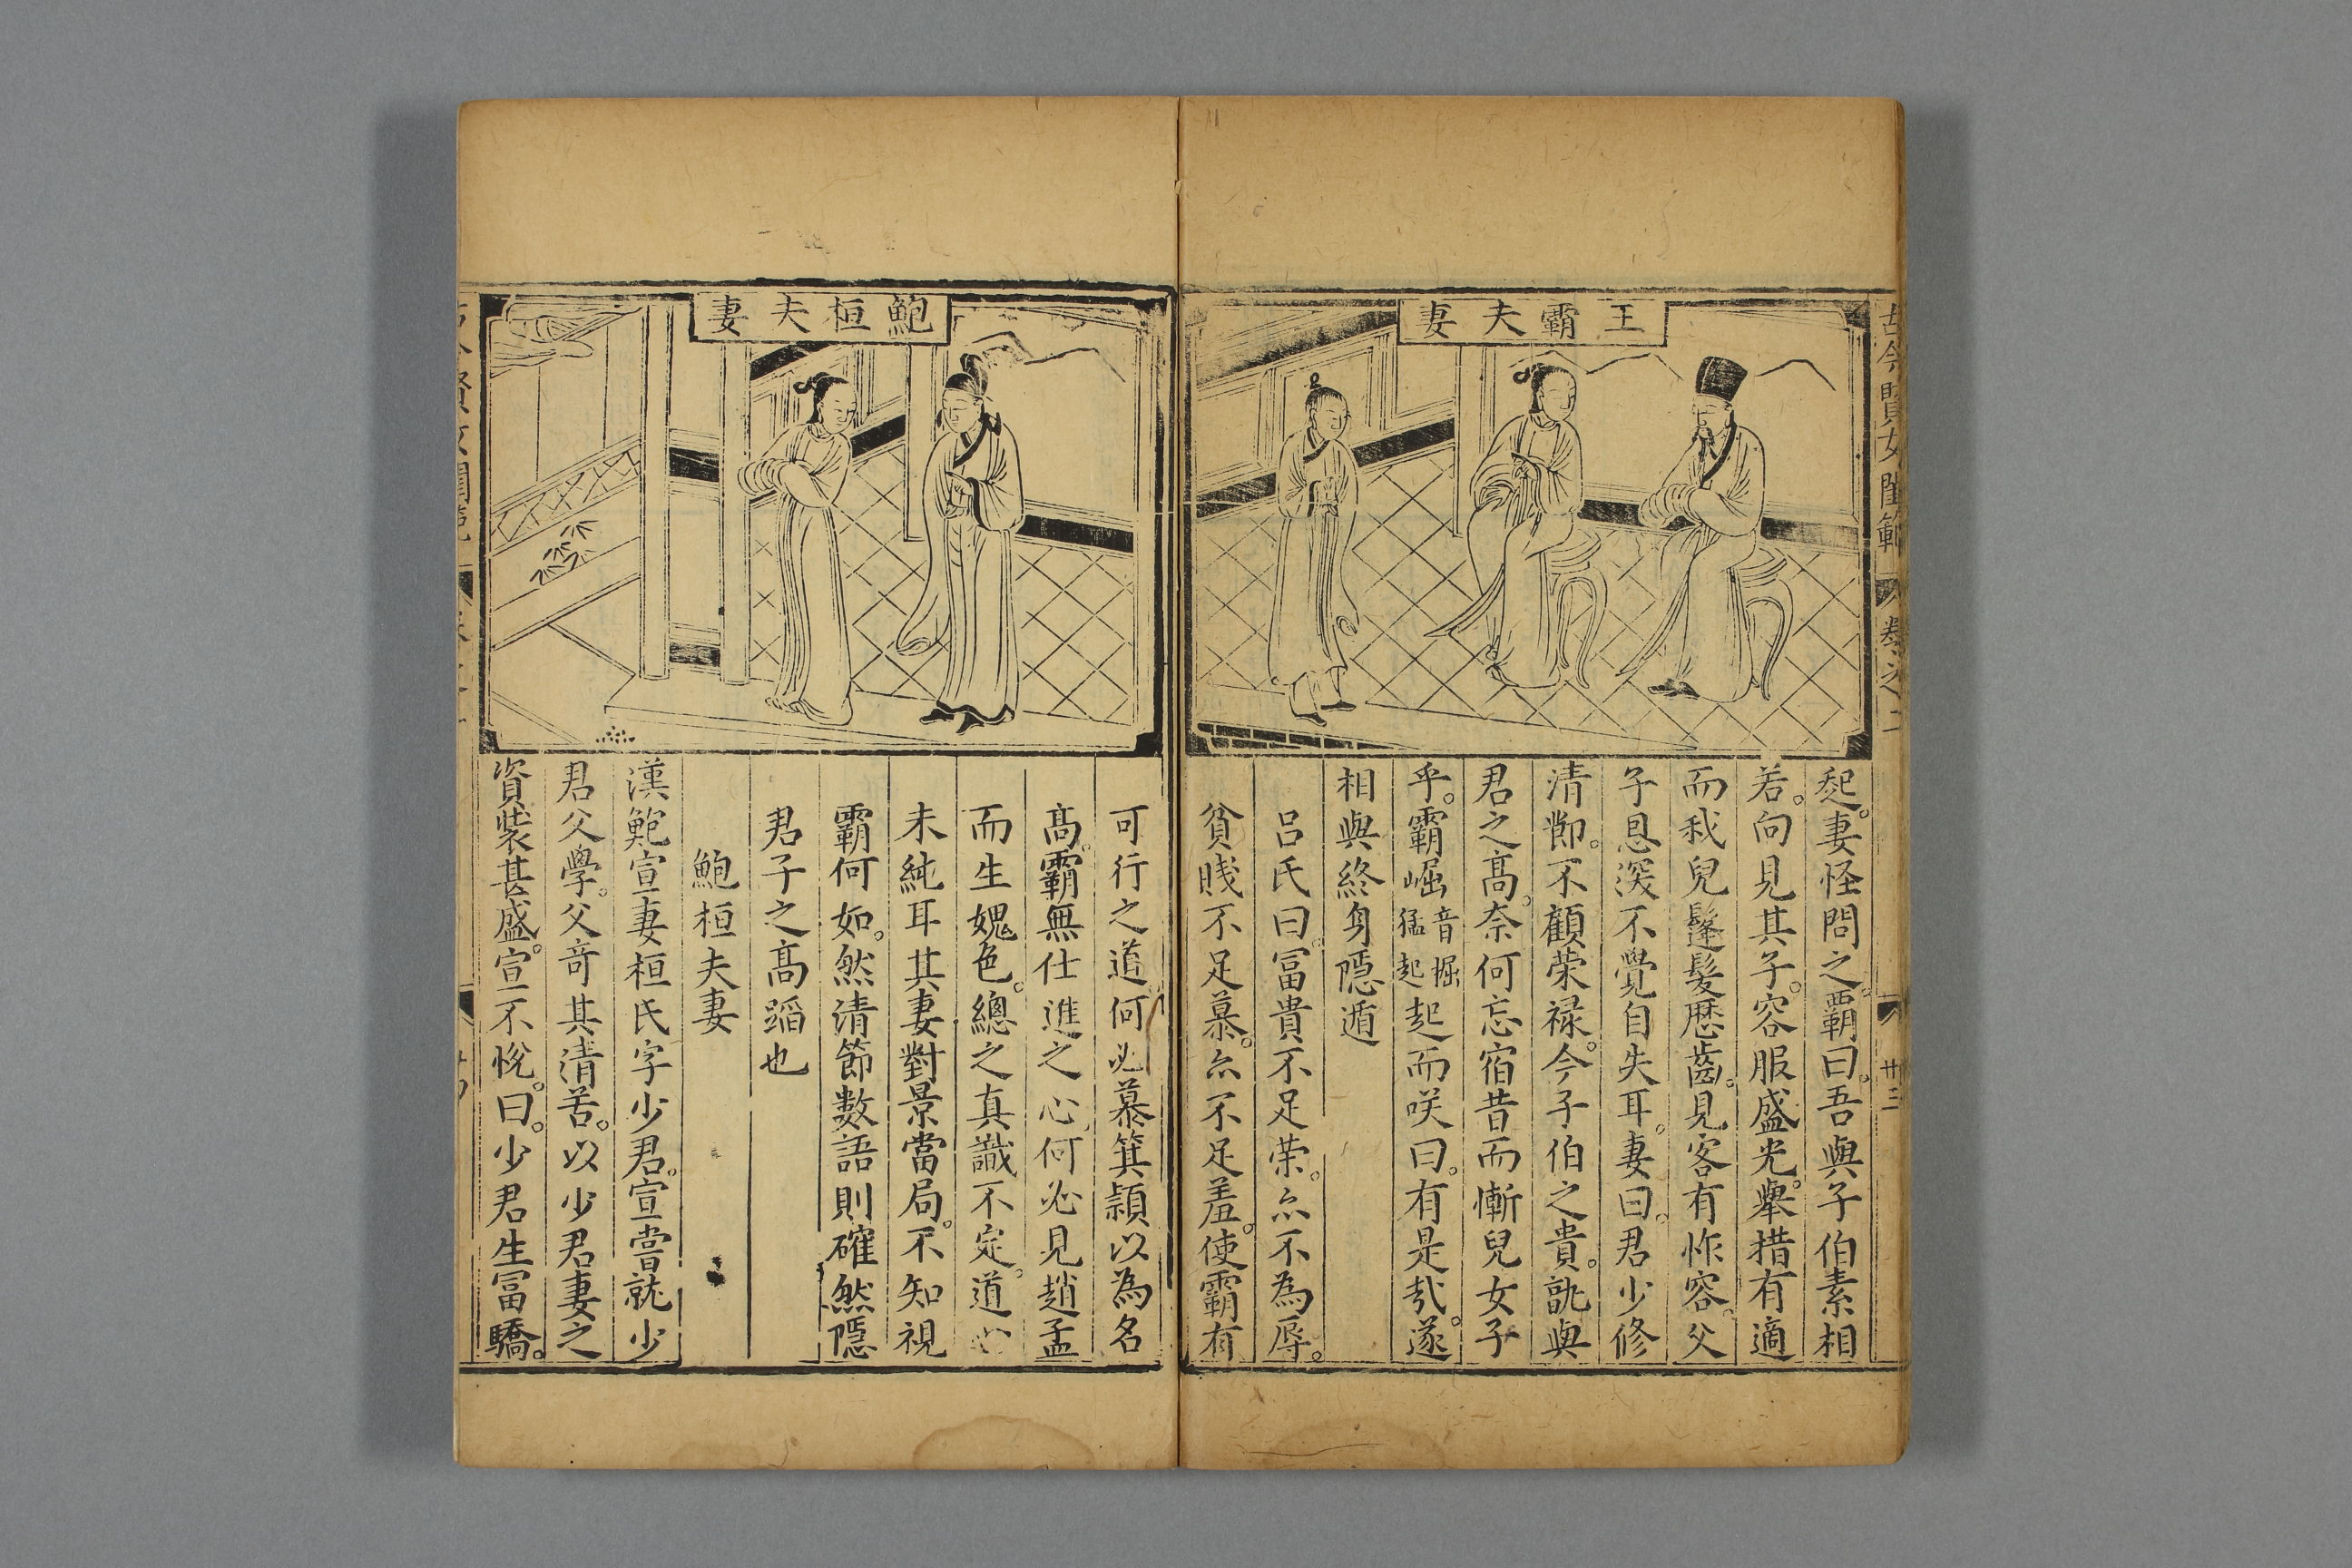 古今賢女閨範
卷之二
廿三
王霸夫妻
起。妻怪問之。霸曰。吾與子伯素相
若。向見其子。容服盛光。舉措有適
而我兒鬔髮歴齒。見客有怍容。父
子恩深不覺自失耳。妻曰。君少修
清節。不顧荣禄。今子伯之貴。孰與
君之髙。奈何忘宿昔而慚兒女子
乎。霸崛音掘猛起起而咲曰。有是㢤。遂
相與終身隱遁
吕氏曰。冨貴不足荣。亦不為辱。
貧賤不足慕。亦不足羞。使霸有
鮑桓夫妻
可行之道何必慕箕頴以為名
髙。霸無仕進之心何必見趙孟
而生媿色。總之真識不定。道
未純耳其妻對景當局。不知視
霸何如。然清節數語則確然隱
君子之髙蹈也
鮑桓夫妻
漢鮑宣妻桓氏字少君。宣嘗就少
君父學。父竒其清苦。以少君妻之
資裝甚盛。宣不悅。曰。少君生冨驕。